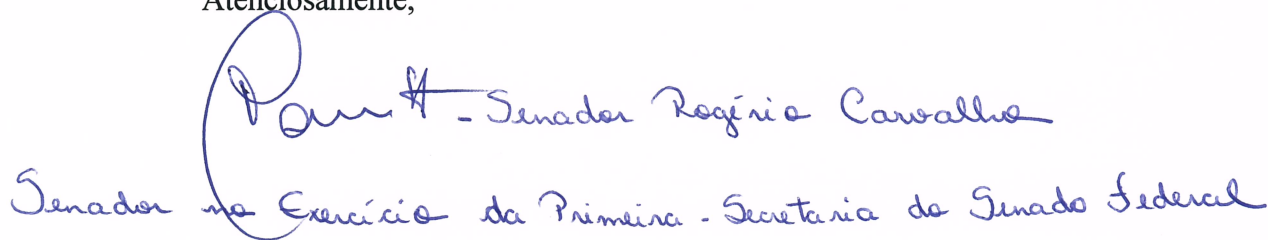 Atenciosamente,
- Senador Rogério Carvalho
Senador no Exercício da Primeira - Secretaria do Senado Federal